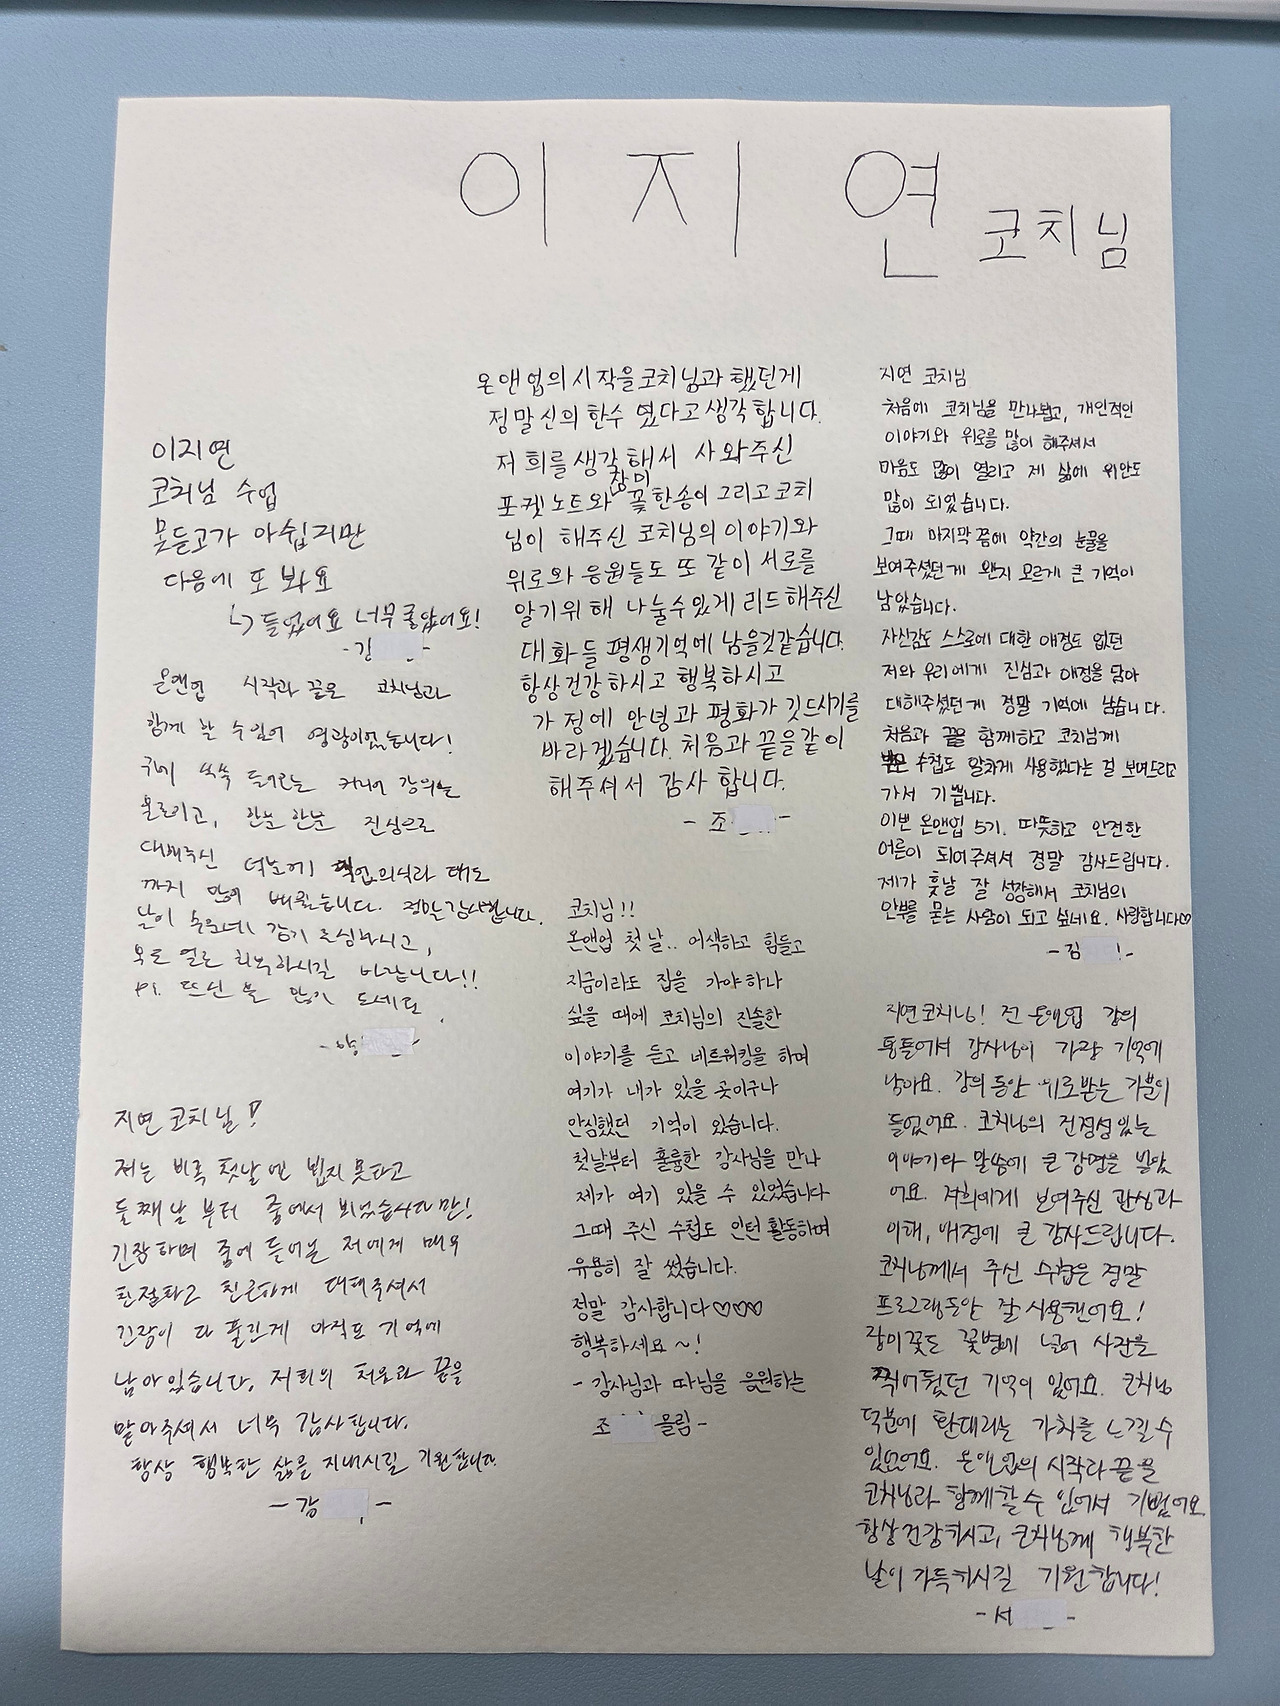 이지연 코치님
이지연
코치님 수업
못듣고가 아쉽지만
다음에 또 봐요
↳ 들었어요 너무 좋았어요!
-김 -
온앤업 시작과 끝을 코치님과
함께 한 수 있어 영광이었습니다!
귀에 쏙쏙 들어오는 커리어 강의는
물론이고, 한분 한분 진심으로
대해주신 덕분에 직업의식과 태도
까지 많이 배웠습니다. 정말 감사합니다.
날이 추워요니 감기 조심하시고,
목도 얼른 회복하시길 바랍니다!!
P.S. 뜨신 물 많이 드세요
-양 -
지연 코치님!
저는 비록 첫날엔 뵙지 못하고
둘째날 부터 줌에서 뵈었습니다만!
긴장하며 줌에 들어온 저에게 매우
친절하고 친근하게 대해주셔서
긴장이 다 풀린게 아직도 기억에
남아있습니다. 저희의 처음과 끝을
맡아주셔서 너무 감사합니다.
항상 행복한 삶을 지내시길 기원합니다.
-강 -
온앤업의 시작을 코치님과 했던게
정말 신의 한수 였다고 생각합니다.
저희를 생각해서 사와주신
포켓노트와 장미 꽃한송이 그리고 코치
님이 해주신 코치님의 이야기와
위로와 응원들도 또 같이 서로를
알기위해 나눌수있게 리드해주신
대화들 평생기억에 남을것같습니다.
항상건강하시고 행복하시고
가정에 안녕과 평화가 깃드시기를
바라겠습니다. 처음과 끝을같이
해주셔서 감사 합니다.
-조 -
코치님!!
온앤업 첫날.. 어색하고 힘들고
지금이라도 집을 가야하나
싶을 때에 코치님의 진솔한
이야기를 듣고 네트워킹을 하며
여기가 내가 있을 곳이구나
안심했던 기억이 있습니다.
첫날부터 훌륭한 강사님을 만나
제가 여기 있을 수 있었습니다
그때 주신 수첩도 인턴 활동하며
유용히 잘 썼습니다.
정말 감사합니다♡♡♡
행복하세요~!
- 강사님과 따님을 응원하는
조 올림-
지연 코치님
처음에 코치님을 만나뵙고, 개인적인
이야기와 위로를 많이 해주셔서
마음도 많이 열리고 제 삶에 위안도
많이 되었습니다.
그때 마지막 쯤에 약간의 눈물을
보여주셨던 게 왠지 모르게 큰 기억이
남았습니다.
자신감도 스스로에 대한 애정도 없던
저와 우리에게 진심과 애정을 담아
대해주셨던 게 정말 기억에 남습니다.
처음과 끝을 함께하고 코치님께
받은 수첩도 알차게 사용했다는 걸 보여드리고
가서 기쁩니다.
이번 온앤업 5기. 따뜻하고 안전한
어른이 되어주셔서 정말 감사드립니다.
제가 훗날 잘 성장해서 코치님의
안부를 묻는 사람이 되고 싶네요. 사랑합니다♡
-김 -
지연코치님! 전 온앤업 강의
통틀어서 강사님이 가장 기억에
남아요. 강의 동안 위로받는 기분이
들었어요. 코치님의 진정성있는
이야기와 말씀에 큰 감명을 받았
어요. 저희에게 보여주신 관심과
이해, 애정에 큰 감사드립니다.
코치님께서 주신 수첩은 정말
프로그램동안 잘 사용했어요!
장미꽃도 꽃병에 넣어 사진을
찍어뒀던 기억이 있어요. 코치님
덕분에 환대라는 가치를 느낄 수
있었어요. 온앤업의 시작과 끝을
코치님과 함께할 수 있어서 기뻤어요
항상 건강하시고, 코치님께 행복한
날이 가득하시길 기원합니다!
-서 -